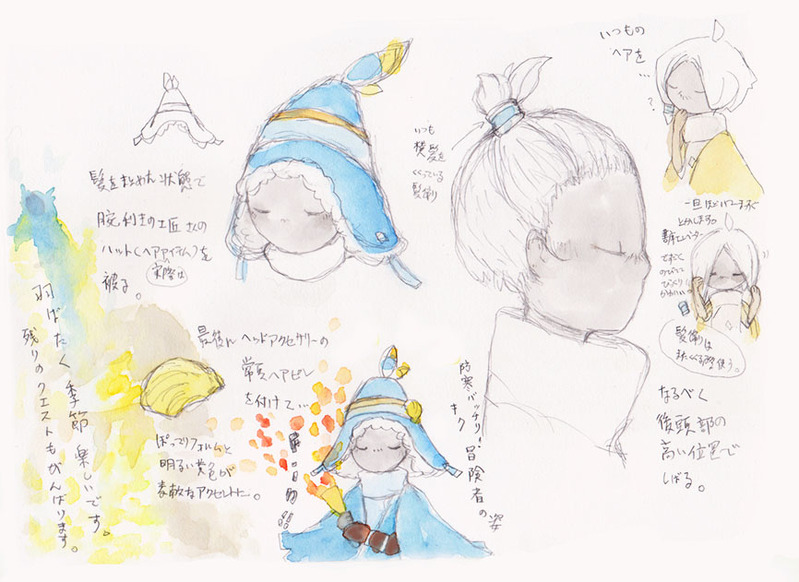 いつもの
ヘアを
…
?
いつも
横髪を
くくっている
髪飾り
一旦
とかしまする
びっくり!
かわいい
髪飾りは
使う。
なるべく
後頭部の
高い位置で
しばる。
髪をまとめた状態で
腕利きの工匠さんの
ハット(ヘアアイテム)を
(実際は)
被る。
最後にヘッドアクセサリーの
常夏ヘアピンを
を付けて…
ぽってりフォルムと
明るい黄色が
素敵なアクセントに…。
防寒バッチリ!
キク
冒険者の姿
羽ばたく季節楽しいです。
残りのクエストもがんばります。